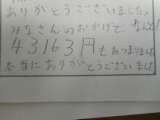 ありがとうございました。
みなさんのおかげで なんと
43163円もあつまりました
本当にありがとうございました